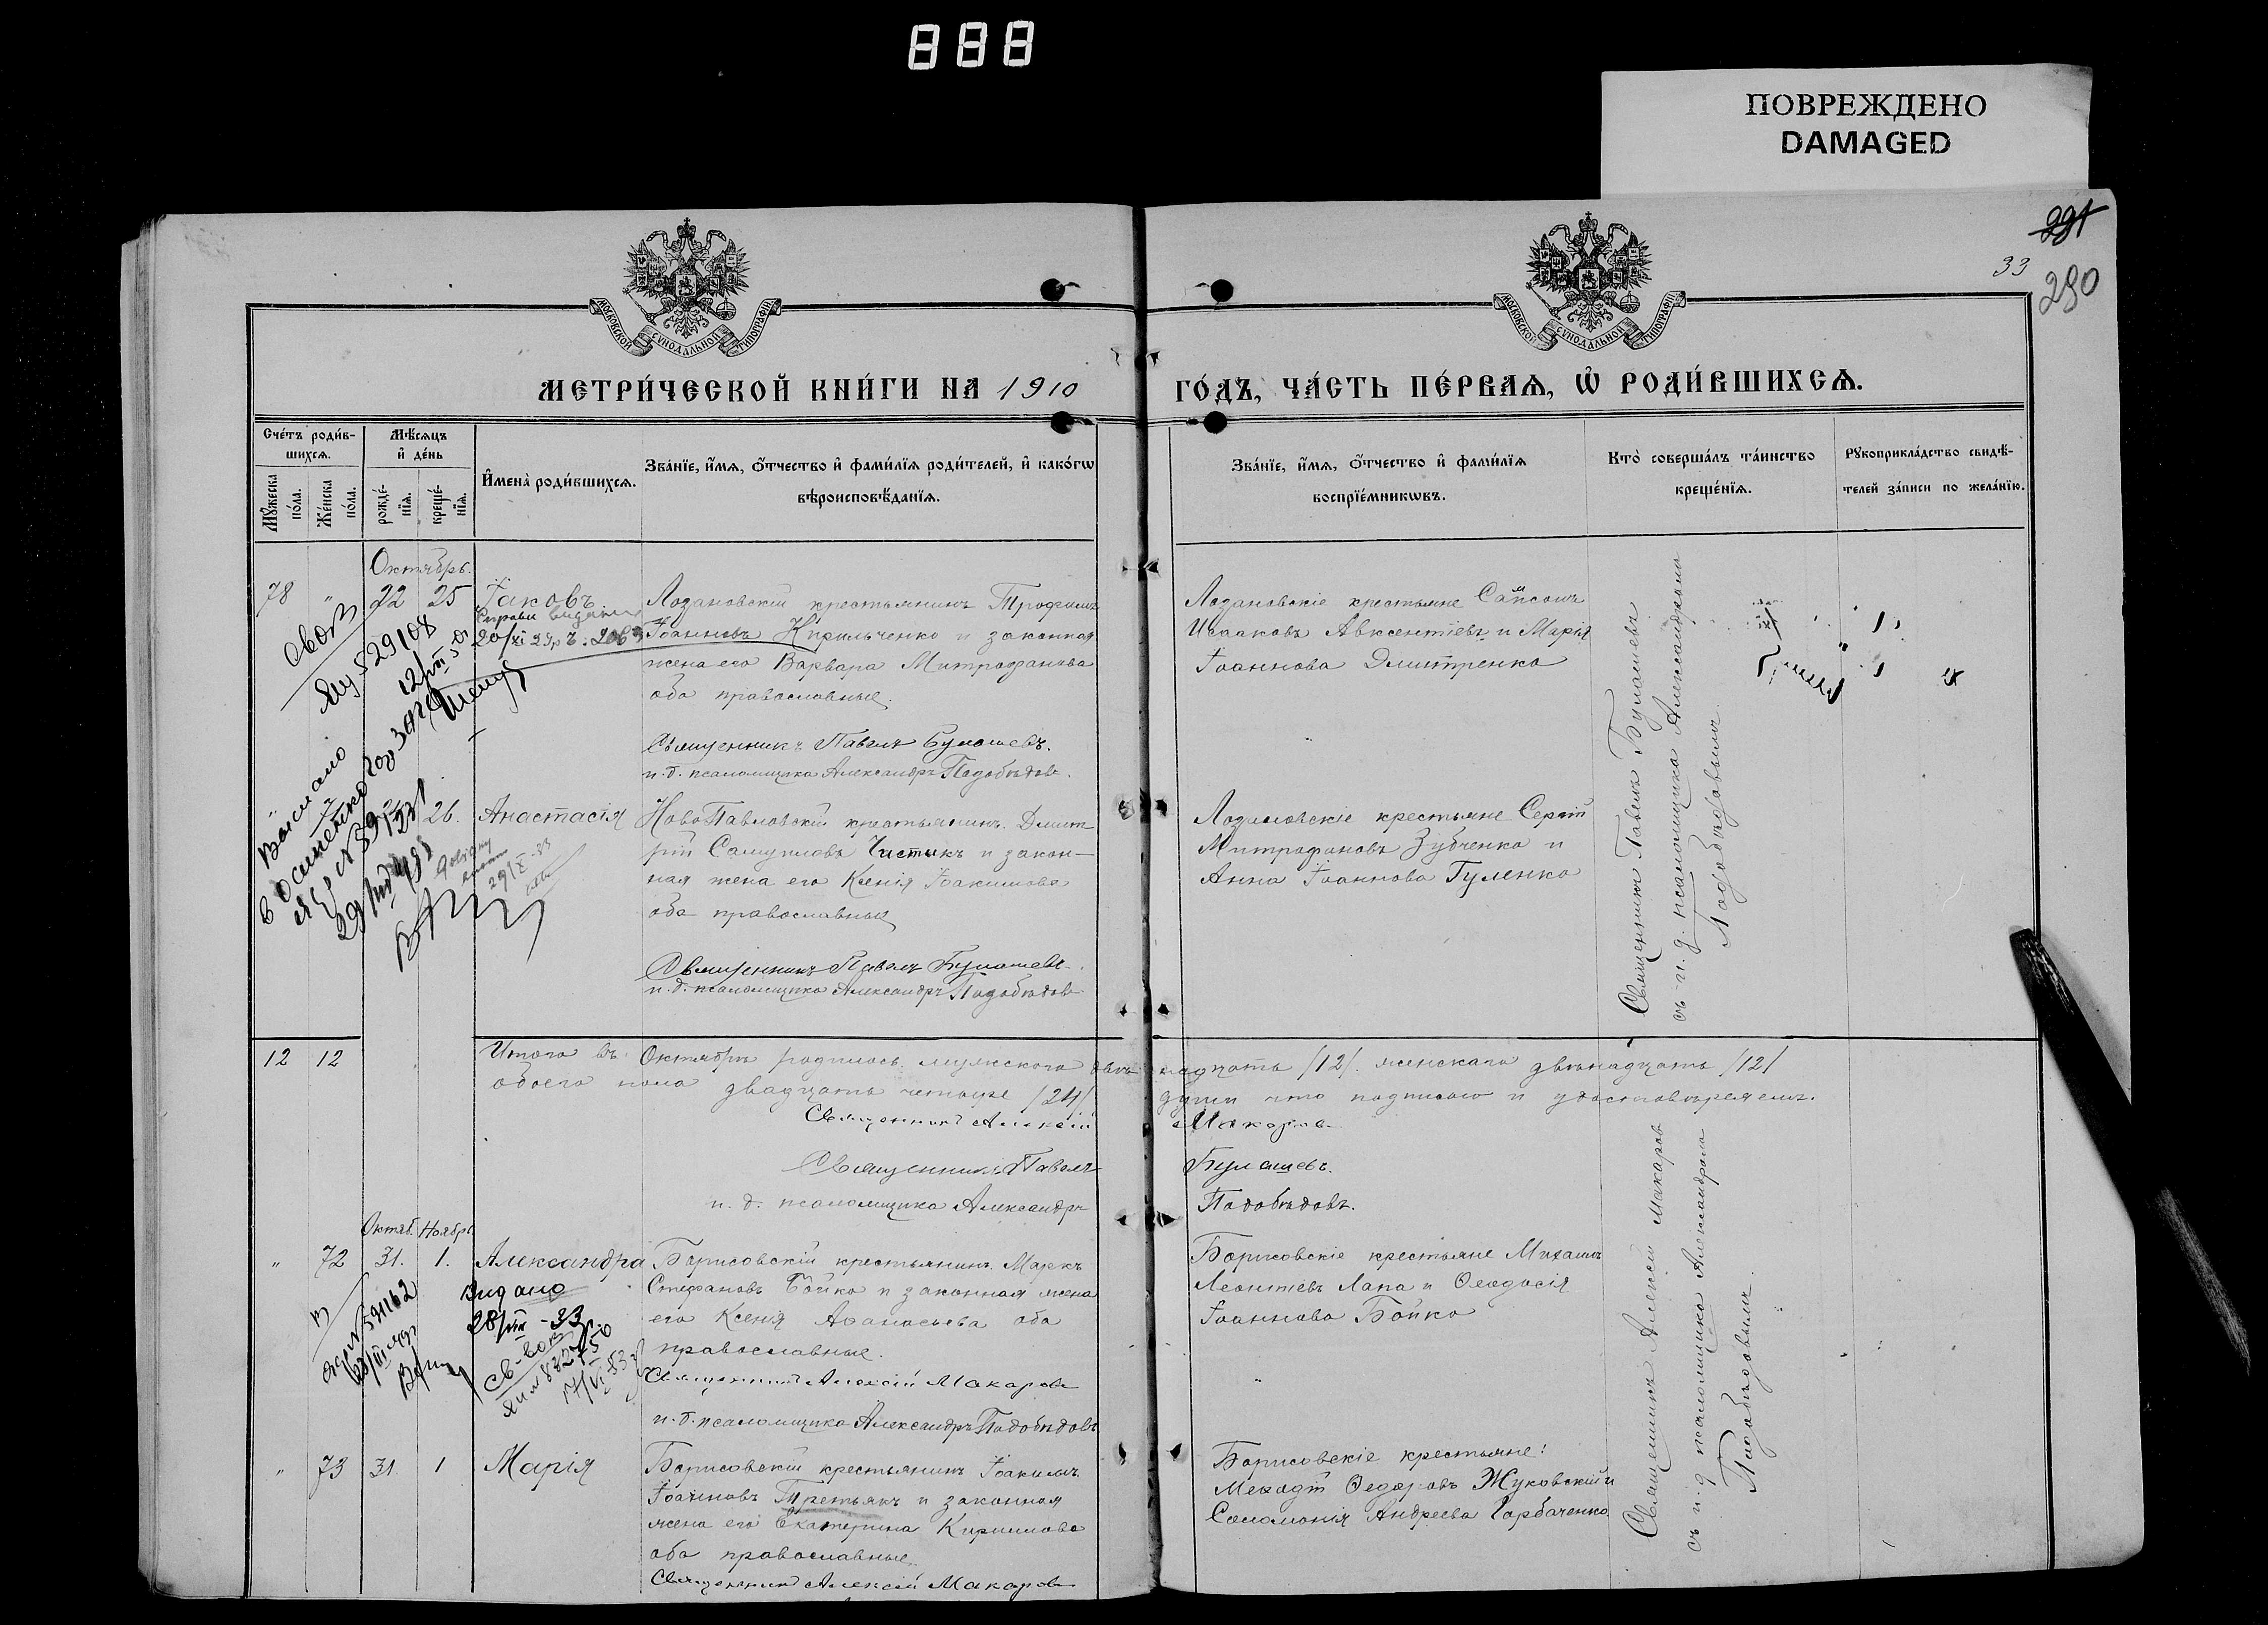 888
ПОВРЕЖДЕНО
DAMAGED
291
33
290
МОСКОВСКОЙ СУНОДАЛЬНОЙ ТИПОГРАФІИ
МОСКОВСКОЙ СУНОДАЛЬНОЙ ТИПОГРАФІИ
МЕТРИ́ЧЕСКОЙ КНИ́ГИ НА 1910
ГО́ДЪ, ЧА́СТЬ ПЕ́РВАѦ, Ѡ РОДИ́ВШИХСѦ.
Сче́тъ роди́в-
шихсѧ.
Мꙋ́жеска
по́ла.
Же́нска
по́ла.
Мѣ́сѧцъ
и҆ де́нь
рожде́-
нїѧ.
креще́-
нїѧ.
И҆мена̀ роди́вшихсѧ.
Зва́нїе, и҆́мѧ, ѻ҆́тчество и҆ фами́лїѧ роди́телей, и҆ како́гѡ
вѣроисповѣ́данїѧ.
Зва́нїе, и҆́мѧ, ѻ҆́тчество и҆ фами́лїѧ
воспрїе́мникѡвъ.
Кто̀ соверша́лъ та́инство
креще́нїѧ.
Рꙋкоприкла́дство свидѣ́-
телей за́писи по жела́нїю.
Октябрь.
78 " 22 25 Іаковъ
Лозановскій крестьянинъ Трофимъ
Іоанновъ Кирильченко и законная
жена его Варвара Митрофанова
оба православные.
Священникъ Павелъ Булашевъ.
и. д. псаломщика Александръ Подобѣдовъ.
Лозановскіе крестьяне Сампсонъ
Исааковъ Авксентіевъ и Марія
Іоаннова Дмитренко
Священникъ Павелъ Булашевъ
съ и. д. псаломщика Александромъ
Подобѣдовымъ.
26. Анастасія
НовоПавловскій крестьянинъ Дмит-
рій Самуиловъ Чистикъ и закон-
ная жена его Ксенія Іоакимова
оба православные
Священникъ Павелъ Булашевъ.
и. д. псаломщика Александръ Подобѣдовъ
Лозановскіе крестьяне Сергій
Митрофановъ Зубченко и
Анна Іоаннова Гуленко
12 12 Итого въ Октябрѣ родилось мужскаго двѣнадцать /12/. женскаго двѣнадцать /12/
обоего пола двадцать четыре /24/ души что подписью и удостовѣряемъ.
Священникъ Алексій Макаровъ
Священникъ Павелъ Булашевъ.
и. д. псаломщика Александръ Подобѣдовъ.
Октяб. Ноябрь
" 72 31. 1. Александра
Видано
28/VIII - 33
Борисовскій крестьянинъ Маркъ
Стефановъ Бойко и законная жена
его Ксенія Аѳанасьева оба
православные.
Священникъ Алексій Макаровъ
и. д. псаломщика Александръ Подобѣдовъ
Борисовскіе крестьяне Михаилъ
Леонтіевъ Лапа и Ѳеодосія
Іоаннова Бойко
Священникъ Алексій Макаровъ
съ и. д псаломщика Александромъ
Подобѣдовымъ.
" 73 31. 1 Марія
Борисовскій крестьянинъ Іоакимъ
Іоанновъ Третьякъ и законная
жена его Екатерина Кириллова
оба православные.
Священникъ Алексій Макаровъ
Борисовскіе крестьяне:
Меѳодій Ѳедоровъ Жуковскій и
Соломонія Андреева Горбаченко